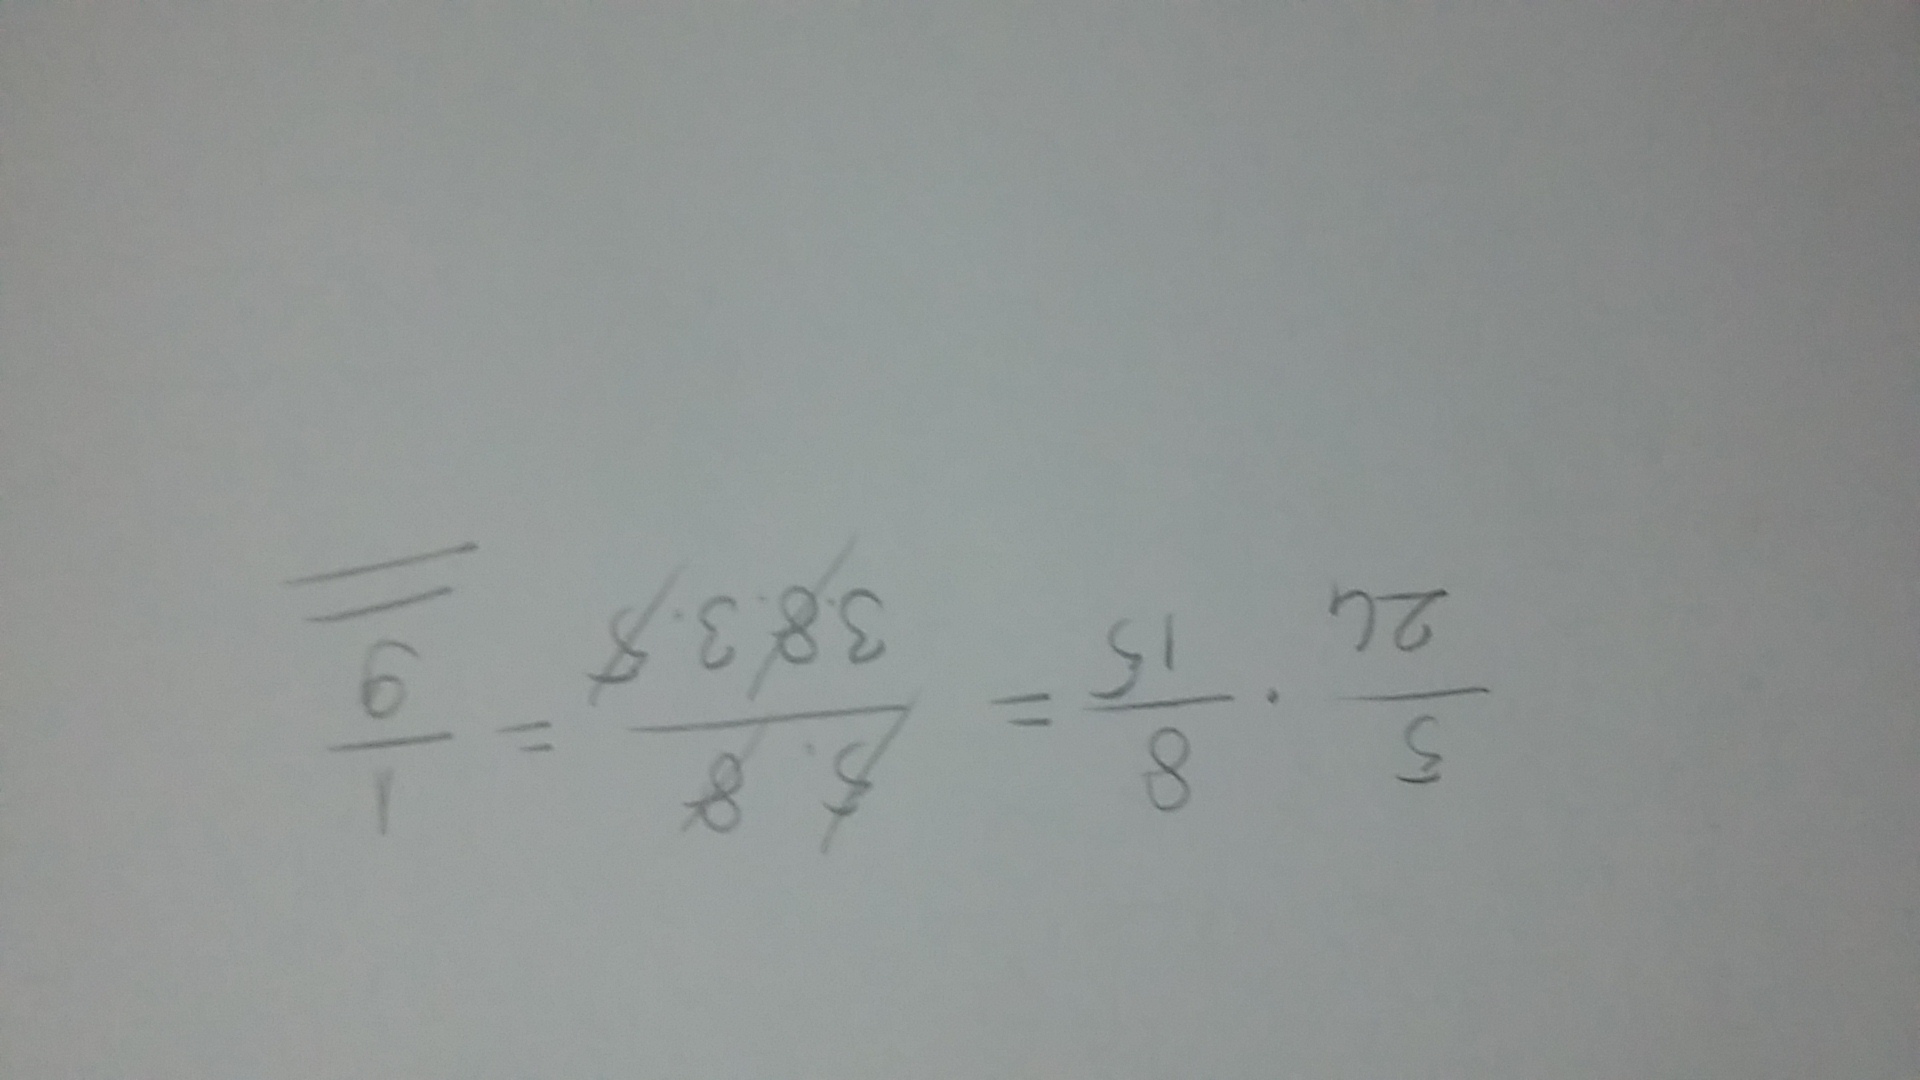 5/24 · 8/15 = 5·8/3·8·3·5 = 1/9